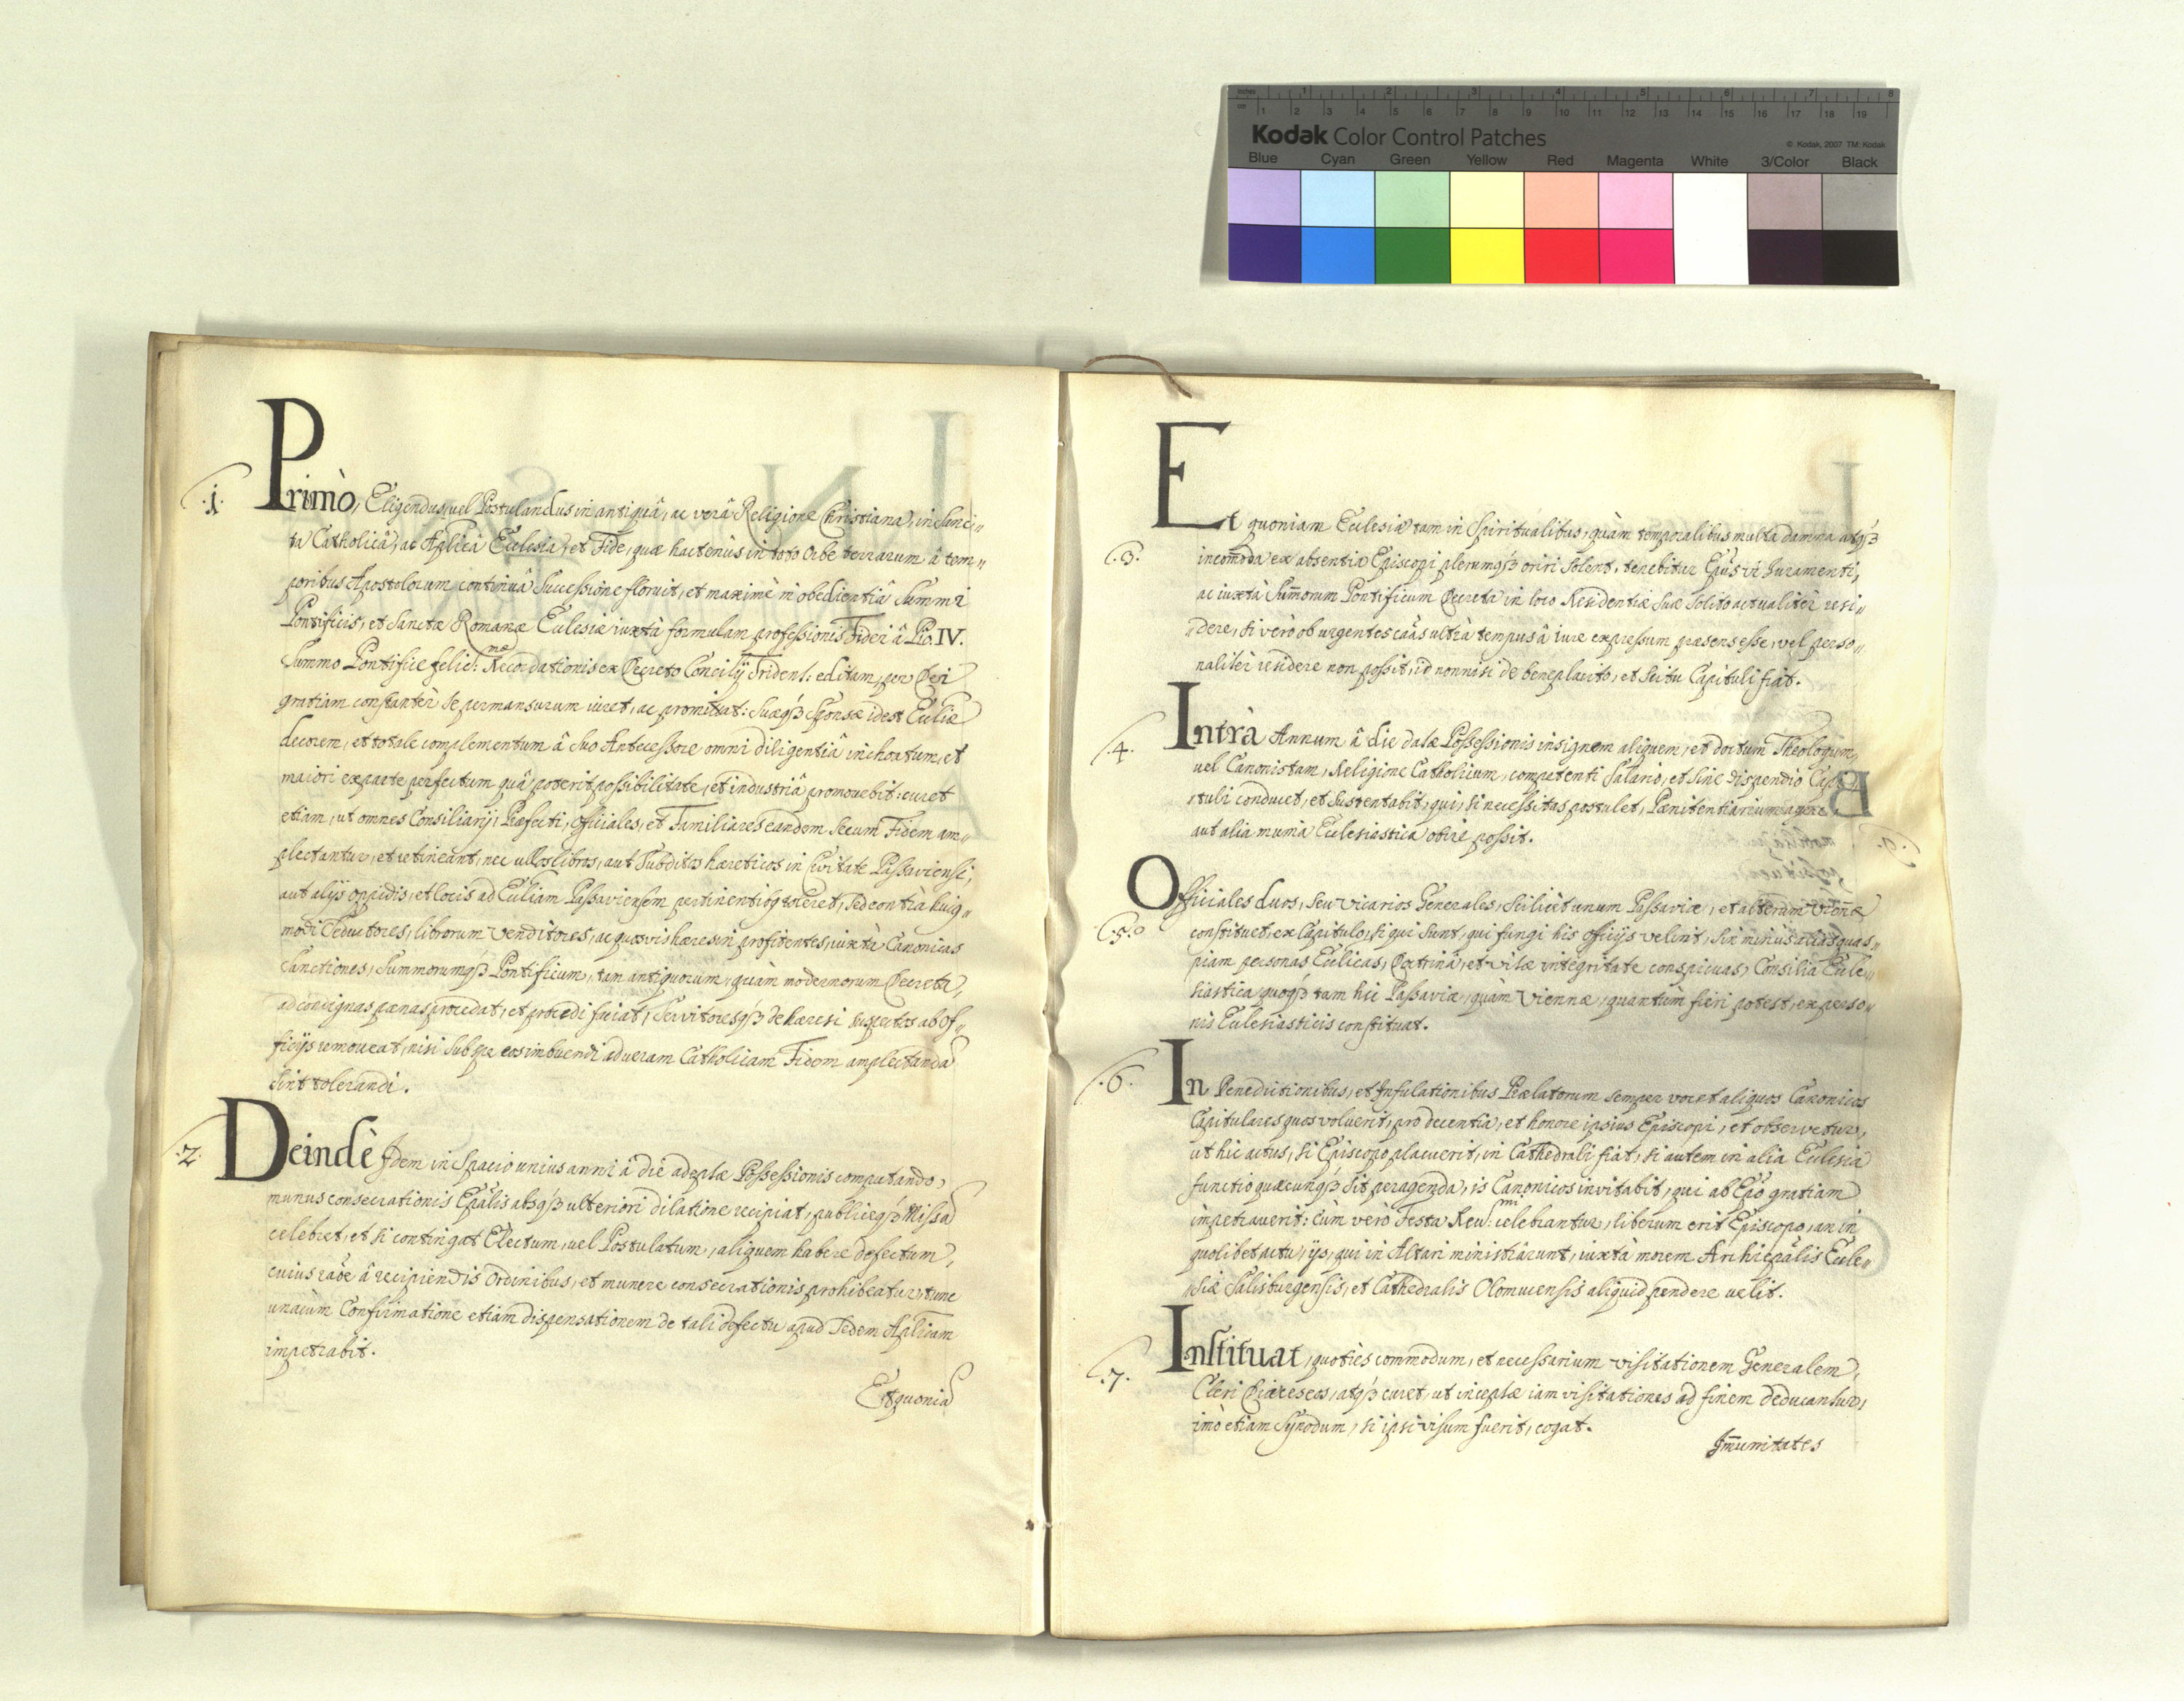 inches 1 2 3 4 5 6 7 8
cm 1 2 3 4 5 6 7 8 9 10 11 12 13 14 15 16 17 18 19
Kodak Color Control Patches
© Kodak, 2007 TM: Kodak
Blue Cyan Green Yellow Red Magenta White 3/Color Black
.1. Primò, Eligendus, vel Postulandus in antiquâ, ac verâ Religione Christiana, in Sanc„
ta Catholicâ, ac Aplicâ Ecclesia, et Fide, quæ hactenùs in toto Orbe terrarum â tem„
poribus Apostolorum continuâ Successione floruit, et maximè in obedientiâ Summi
Pontificis, et Sanctæ Romanæ Eclesiæ iuxtà formulam professionis Fidei â Pio. IV.
Summo Pontifice felic: mæ Recordationis ex Decreto Concilij Trident: editam, per Dei
gratiam constantèr se permansurum iuret, ac promittat: Suæqꝫ Sponsæ idest Eccliæ
decorem, et totale complementum â Suo Antecessore omni diligentiâ inchoatum, et
maiori ex parte perfectum quâ poterit possibilitate, et industriâ promovebit: curet
etiam, ut omnes Consiliarij, Præfecti, Officiales, et Familiares eandem Secum Fidem am„
plectantur, et retineant, nec ullos libros, aut Subditos hæreticos in Civitate Passaviensi,
aut alijs oppidis, et locis ad Eccliam Passaviensem pertinentibꝫ toleret, sed contrà huiꝫ„
modi Seductores, librorum venditores, ac quosvis hæresin profitentes, iuxtà Canonicas
Sanctiones, Summorumqꝫ Pontificum, tam antiquorum, quàm modernorum Decreta,
ad condignas pænas procedat, et procedi faciat, Servitoresqꝫ de hæresi suspectos ab of„
ficijs removeat, nisi Sub spe eos imbuendi ad veram Catholicam Fidem amplectandã
sint tolerandi.
.2. Deindè Idem in Spacio unius anni â die adeptæ Possessionis computando,
munus consecrationis Epãlis absqꝫ ulteriori dilatione recipiat, publiceqꝫ Missã
celebret, et si contingat Electum, vel Postulatum, aliquem habere defectum,
cuius raõe â recipiendis Ordinibus, et munere consecrationis prohibeatur, tunc
unacùm Confirmatione etiam dispensationem de tali defectu apud Sedem Aplicam
impetrabit.
Et quoniã
.3. Et quoniam Ecclesia tam in Spiritualibus, quàm temporalibus multa damna atqꝫ
incom̃oda ex absentia Episcopi plerumqꝫ oriri Solent, tenebitur Epũs vi Juramenti,
ac iuxtà Sum̃orum Pontificum Decreta in loco Residentiæ Suæ Solito actualitèr resi„
dere, si verò ob urgentes caãs ultrà tempus â iure expressum præsens esse, vel perso„
nalitèr residere non possit, id non nisi de beneplacito, et Scitu Capituli fiat.
.4. Intrà Annum â die datæ Possessionis insignem aliquem, et doctum Theologum,
vel Canonistam, Religione Catholicum, competenti Salario, et Sine dispendio Capi„
tuli conducet, et Sustentabit, qui, si necessitas postulet, Pœnitentiarium agere,
aut alia munia Ecclesiastica obire possit.
.5. Officiales duos, Seu Vicarios Generales, Scilicèt unum Passaviæ, et alterum Vieñæ
constituet, ex Capitulo, si qui sunt, qui fungi his officijs velint, sin minùs alias quas„
piam personas Ecclicas, Doctrinâ, et vitæ integritate conspicuas, Consilia Eccle„
siastica quoqꝫ tam hic Passaviæ, quàm Viennæ, quantùm fieri potest, ex perso„
nis Ecclesiasticis constituat.
.6. In Benedictionibus, et Infulationibus Prælatorum semper vocet aliquos Canonicos
Capitulares quos voluerit, pro decentia, et honore ipsius Episcopi, et observetur,
ut hic actus, si Episcopo placuerit, in Cathedrali fiat, si autem in alia Ecclesia
functio quæcunqꝫ sit peragenda, is Canonicos invitabit, qui ab Epõ gratiam
impetraverit: Cùm verò Festa Reud:mi celebrantur, liberum erit Episcopo, an in
quolibet actu, ijs, qui in Altari ministrârunt, iuxtà morem Archiepãlis Eccle„
siæ Salisburgensis, et Cathedralis Olomucensis aliquid pendere velit.
.7. Instituat, quotiès commodum, et necessarium visitationem Generalem,
Cleri Diœceseos, atqꝫ curet, ut inceptæ iam visitationes ad finem deducantur,
imò etiam Synodum, si ipsi visum fuerit, cogat.
Im̃unitates